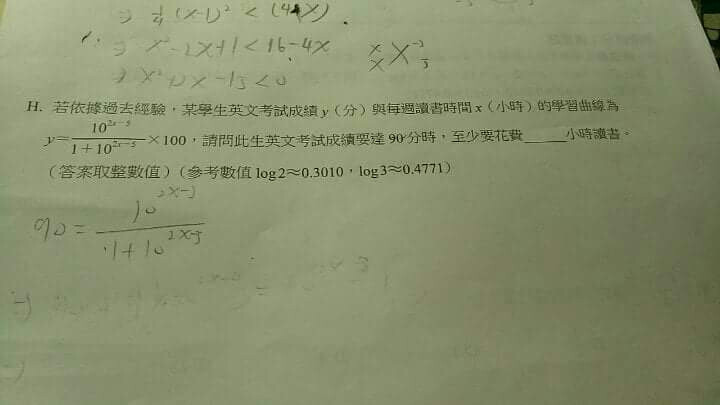 ⇒ 1/4 (x-1)² < (4-x)
⇒ x² -2x+1 < 16-4x
⇒ x²+2x-15 < 0
x x -3 5
H. 若依據過去經驗,某學生英文考試成績 y(分)與每週讀書時間 x(小時)的學習曲線為
y=10^(2x-5)/(1+10^(2x-5))×100,請問此生英文考試成績要達 90 分時,至少要花費______小時讀書。
(答案取整數值)(參考數值 log2≈0.3010,log3≈0.4771)
90 = 10^(2x-5)/(1+10^(2x-5))